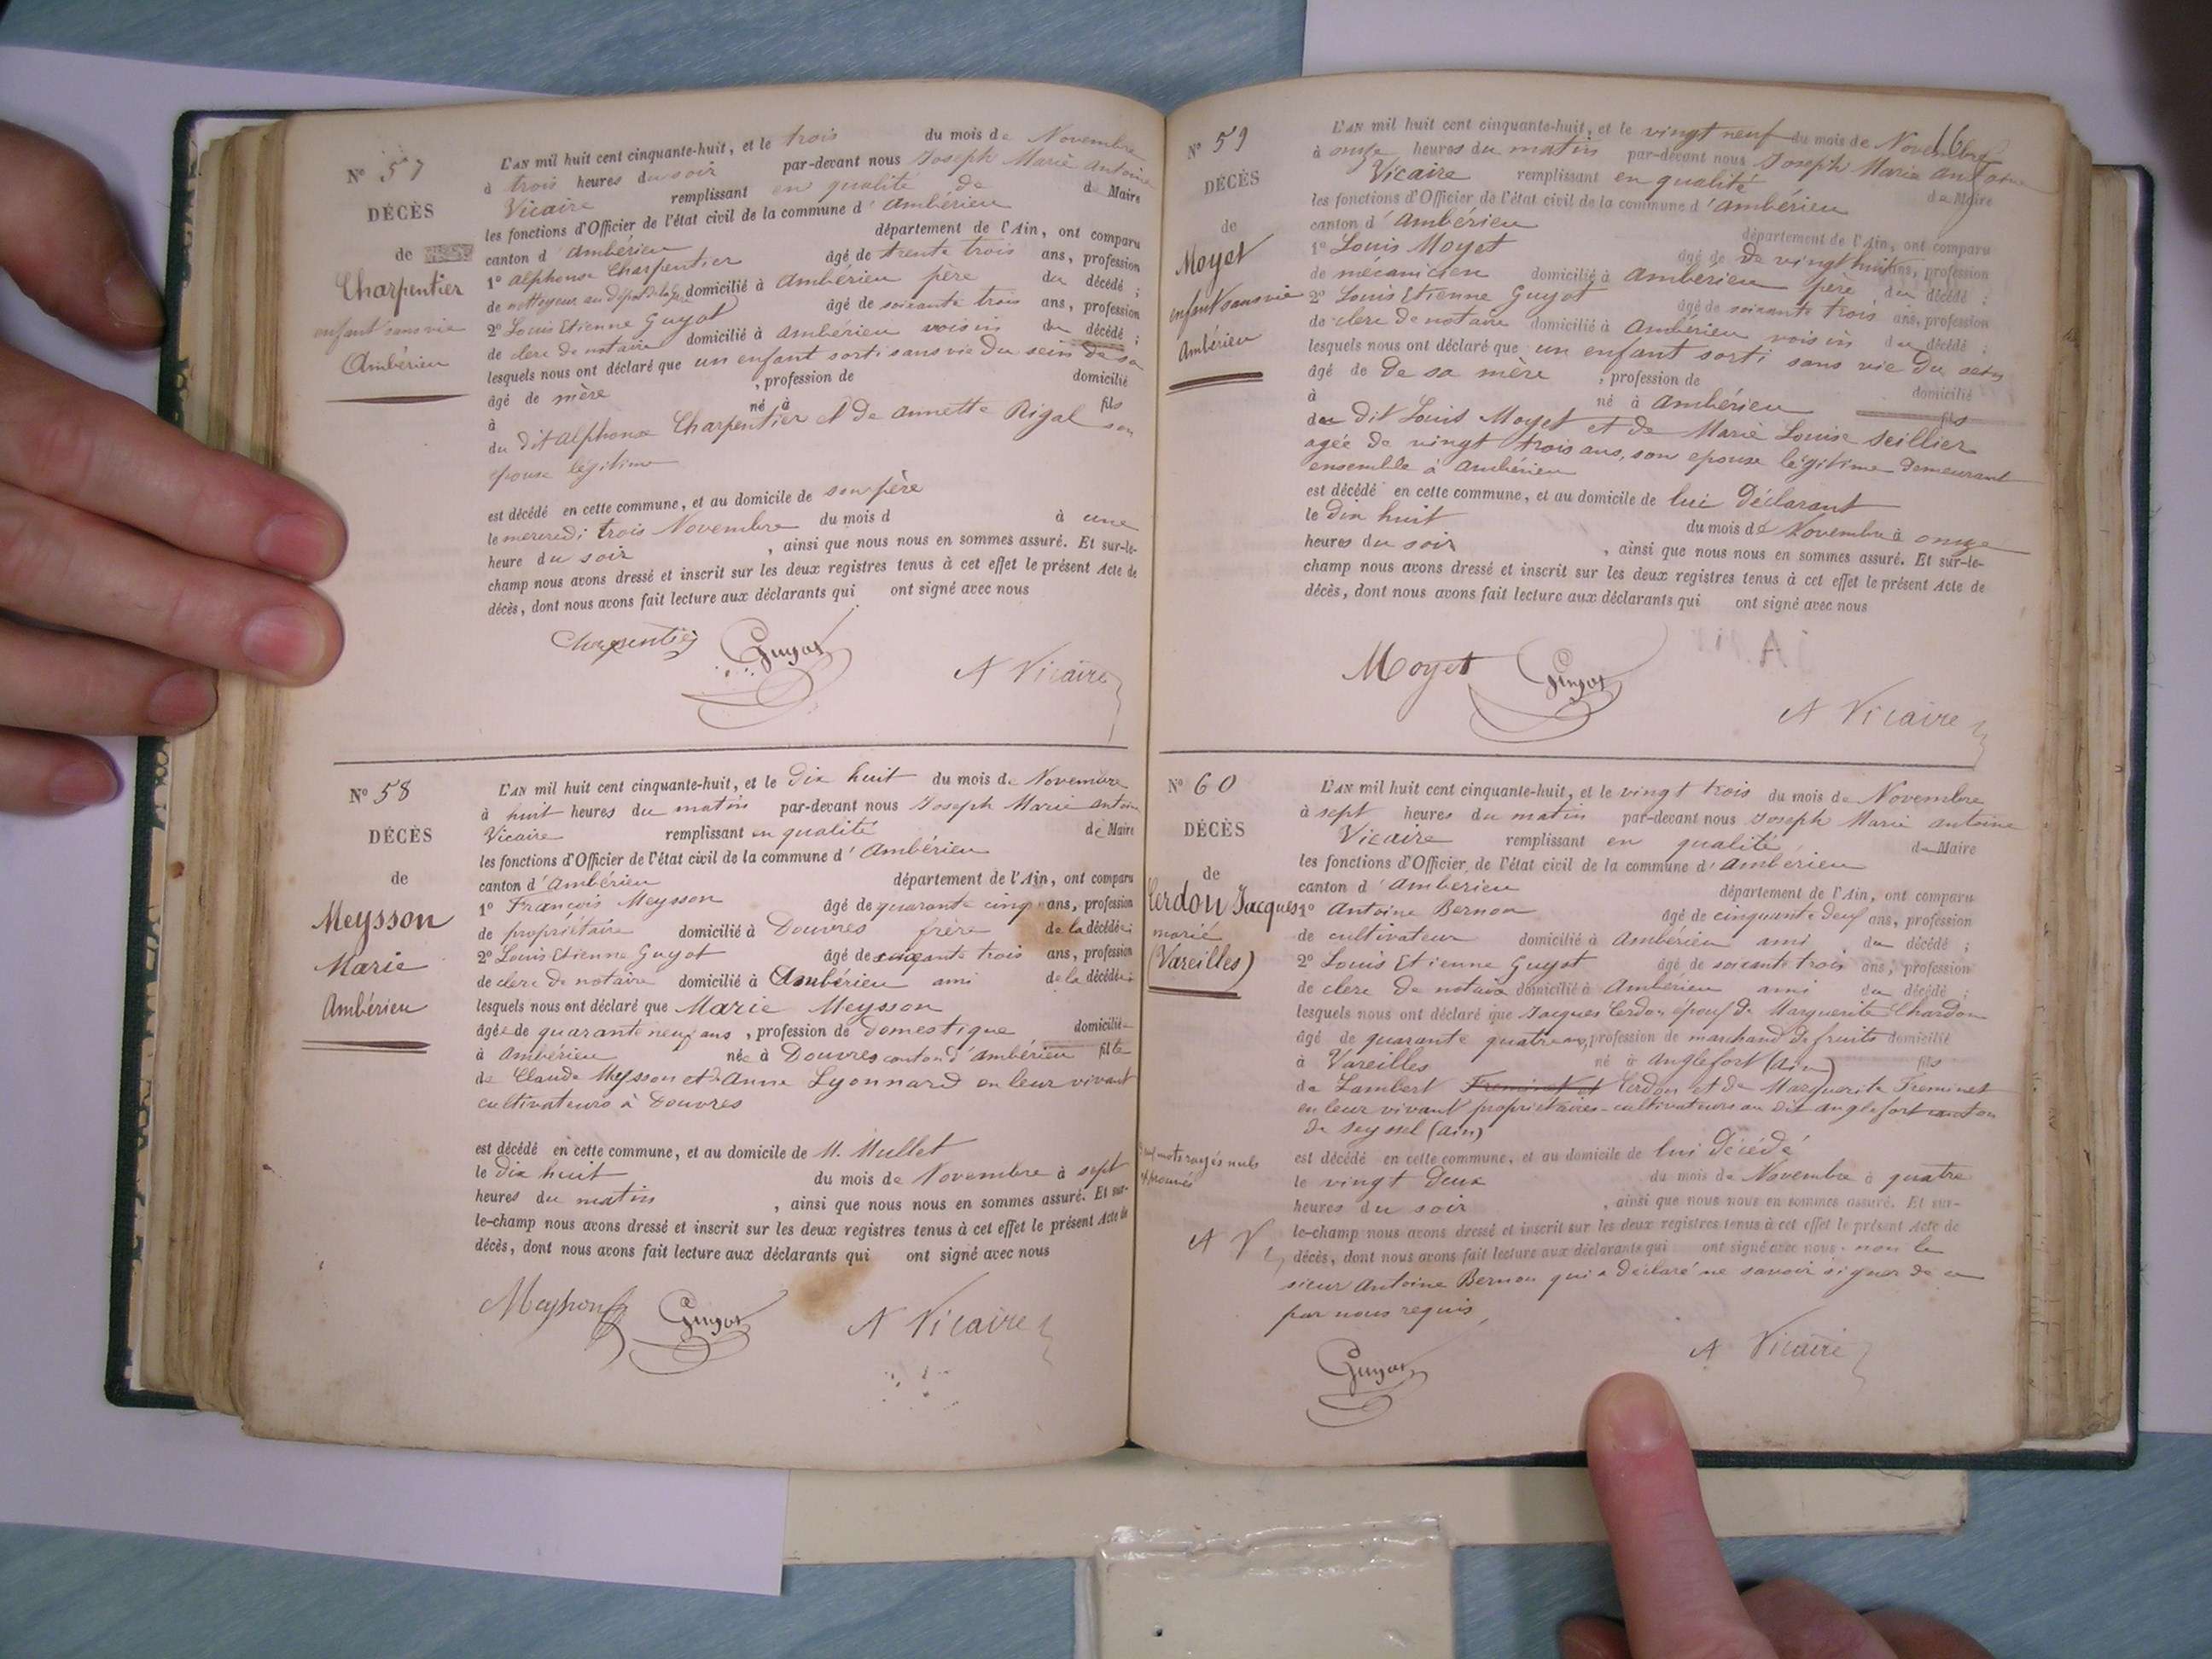 N° 57
DÉCÈS
de
Charpentier
enfant sans vie
Ambérieu
L'AN mil huit cent cinquante-huit, et le trois du mois de Novembre
à trois heures du soir par-devant nous Joseph Marie Antoine
Vicaire remplissant en qualité de de Maire
les fonctions d'Officier de l'état civil de la commune d'Ambérieu
canton d'Ambérieu département de l'Ain, ont comparu
1° Alphonse Charpentier âgé de trente trois ans, profession
de nettoyeur au dépôt de la domicilié à Ambérieu père du décédé ;
2° Louis Etienne Guyot âgé de soixante trois ans, profession
de clerc de notaire domicilié à Ambérieu voisin du décédé ;
lesquels nous ont déclaré que un enfant sorti sans vie du sein de sa
âgé de mère , profession de domicilié
à né à fils
du dit Alphonse Charpentier et de Annette Rigal son
epouse légitime
est décédé en cette commune, et au domicile de son père
le mercredi trois Novembre du mois d à une
heure du soir , ainsi que nous nous en sommes assuré. Et sur-le-
champ nous avons dressé et inscrit sur les deux registres tenus à cet effet le présent Acte de
décès, dont nous avons fait lecture aux déclarants qui ont signé avec nous
Charpentier Guyot
A Vicaire
N° 58
DÉCÈS
de
Meysson
Marie
Ambérieu
L'AN mil huit cent cinquante-huit, et le dix huit du mois de Novembre
à huit heures du matin par-devant nous Joseph Marie Antoine
Vicaire remplissant en qualité de Maire
les fonctions d'Officier de l'état civil de la commune d'Ambérieu
canton d'Ambérieu département de l'Ain, ont comparu
1° François Meysson âgé de quarante cinq ans, profession
de propriétaire domicilié à Douvres frère de la décédée ;
2° Louis Etienne Guyot âgé de soixante trois ans, profession
de clerc de notaire domicilié à Ambérieu ami de la décédée ;
lesquels nous ont déclaré que Marie Meysson
âgée de quarante neuf ans , profession de domestique domicilié
à Ambérieu née à Douvres canton d'Ambérieu fille
de Claude Meysson et d'Anne Lyonnard en leur vivant
cultivateurs à Douvres
est décédé en cette commune, et au domicile de M. Mullet
le dix huit du mois de Novembre à sept
heures du matin , ainsi que nous nous en sommes assuré. Et sur-
le-champ nous avons dressé et inscrit sur les deux registres tenus à cet effet le présent Acte de
décès, dont nous avons fait lecture aux déclarants qui ont signé avec nous
Meysson Guyot A Vicaire
16
N° 59
DÉCÈS
de
Moyet
enfant sans vie
Ambérieu
L'AN mil huit cent cinquante-huit, et le vingt neuf du mois de Novembre
à onze heures du matin par-devant nous Joseph Marie Antoine
Vicaire remplissant en qualité de Maire
les fonctions d'Officier de l'état civil de la commune d'Ambérieu
canton d'Ambérieu département de l'Ain, ont comparu
1° Louis Moyet âgé de de vingt huit ans, profession
de mécanicien domicilié à Ambérieu père du décédé ;
2° Louis Etienne Guyot âgé de soixante trois ans, profession
de clerc de notaire domicilié à Ambérieu voisin du décédé ;
lesquels nous ont déclaré que un enfant sorti sans vie du sein
âgé de de sa mère , profession de domicilié
à né à Ambérieu fils
du dit Louis Moyet et de Marie Louise Seillier
agée de vingt trois ans, son epouse légitime demeurant
ensemble à Ambérieu
est décédé en cette commune, et au domicile de lui déclarant
le dix huit du mois de Novembre à onze
heures du soir , ainsi que nous nous en sommes assuré. Et sur-le-
champ nous avons dressé et inscrit sur les deux registres tenus à cet effet le présent Acte de
décès, dont nous avons fait lecture aux déclarants qui ont signé avec nous
Moyet Guyot
A Vicaire
N° 60
DÉCÈS
de
Cerdon Jacques
marié
(Vareilles)
L'AN mil huit cent cinquante-huit, et le vingt trois du mois de Novembre
à sept heures du matin par-devant nous Joseph Marie Antoine
Vicaire remplissant en qualité de Maire
les fonctions d'Officier de l'état civil de la commune d'Ambérieu
canton d'Ambérieu département de l'Ain, ont comparu
1° Antoine Bernon âgé de cinquante deux ans, profession
de cultivateur domicilié à Ambérieu ami du décédé ;
2° Louis Etienne Guyot âgé de soixante trois ans, profession
de clerc de notaire domicilié à Ambérieu ami du décédé ;
lesquels nous ont déclaré que Jacques Cerdon époux de Marguerite Chardon
âgé de quarante quatre ans, profession de marchand de fruits domicilié
à Vareilles né à Anglefort (Ain) fils
de Lambert Freminet et Cerdon et de Marguerite Freminet
en leur vivant propriétaires-cultivateurs au dit Anglefort canton
de Seyssel (Ain)
est décédé en cette commune, et au domicile de lui décédé
le vingt deux du mois de Novembre à quatre
heures du soir , ainsi que nous nous en sommes assuré. Et sur-
le-champ nous avons dressé et inscrit sur les deux registres tenus à cet effet le présent Acte de
décès, dont nous avons fait lecture aux déclarants qui ont signé avec nous. non le
sieur Antoine Bernon qui a déclaré ne savoir signer de ce
par nous requis
mots rayés nuls
approuvés
A V
Guyot
A Vicaire